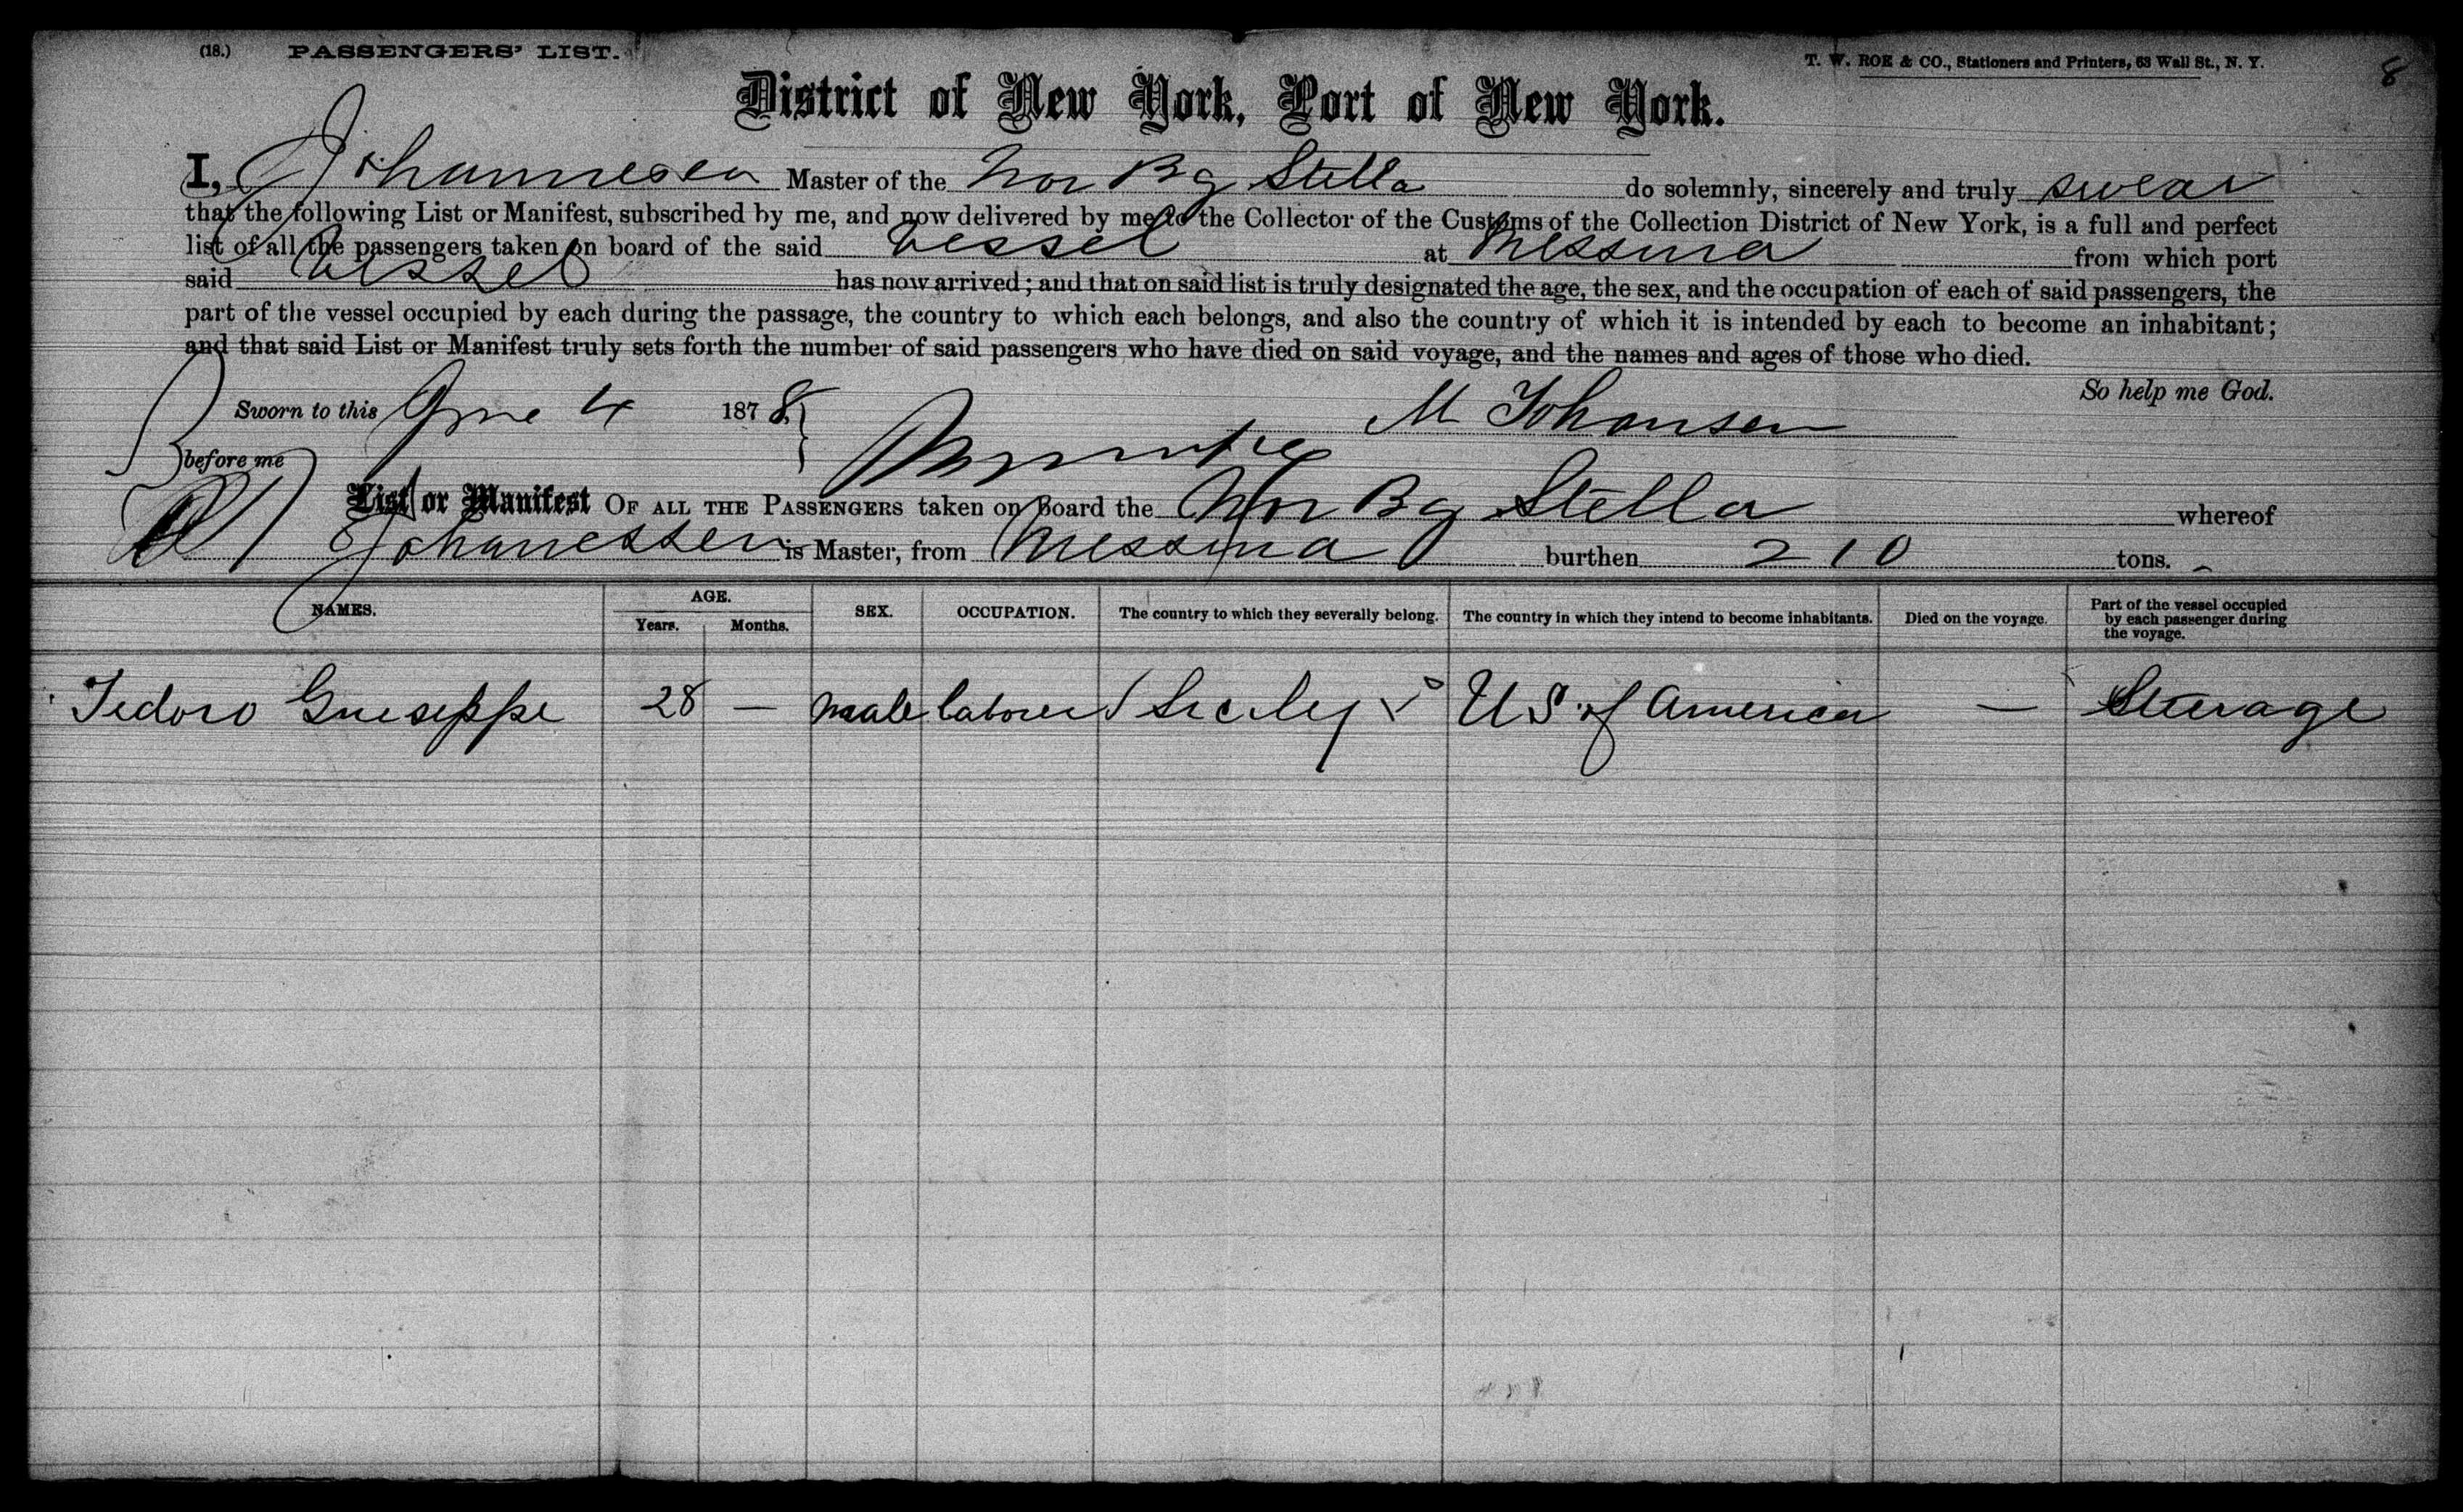 (18.) PASSENGERS' LIST.
T. W. ROE & CO., Stationers and Printers, 63 Wall St., N. Y.
8
District of New York, Port of New York.
I, Johannesen Master of the Nor Bg Stella do solemnly, sincerely and truly swear
that the following List or Manifest, subscribed by me, and now delivered by me to the Collector of the Customs of the Collection District of New York, is a full and perfect
list of all the passengers taken on board of the said vessel at Messina from which port
said vessel has now arrived; and that on said list is truly designated the age, the sex, and the occupation of each of said passengers, the
part of the vessel occupied by each during the passage, the country to which each belongs, and also the country of which it is intended by each to become an inhabitant;
and that said List or Manifest truly sets forth the number of said passengers who have died on said voyage, and the names and ages of those who died.
So help me God.
Sworn to this June 4 1878. M Johansen
before me
List or Manifest OF ALL THE PASSENGERS taken on Board the Nor Bg Stella whereof
Johannessen is Master, from Messina burthen 210 tons.
NAMES. AGE. Years. Months. SEX. OCCUPATION. The country to which they severally belong. The country in which they intend to become inhabitants. Died on the voyage. Part of the vessel occupied by each passenger during the voyage.
Tedoro Gueseppe 28 — male laborer Sicily U S. of America — Steerage